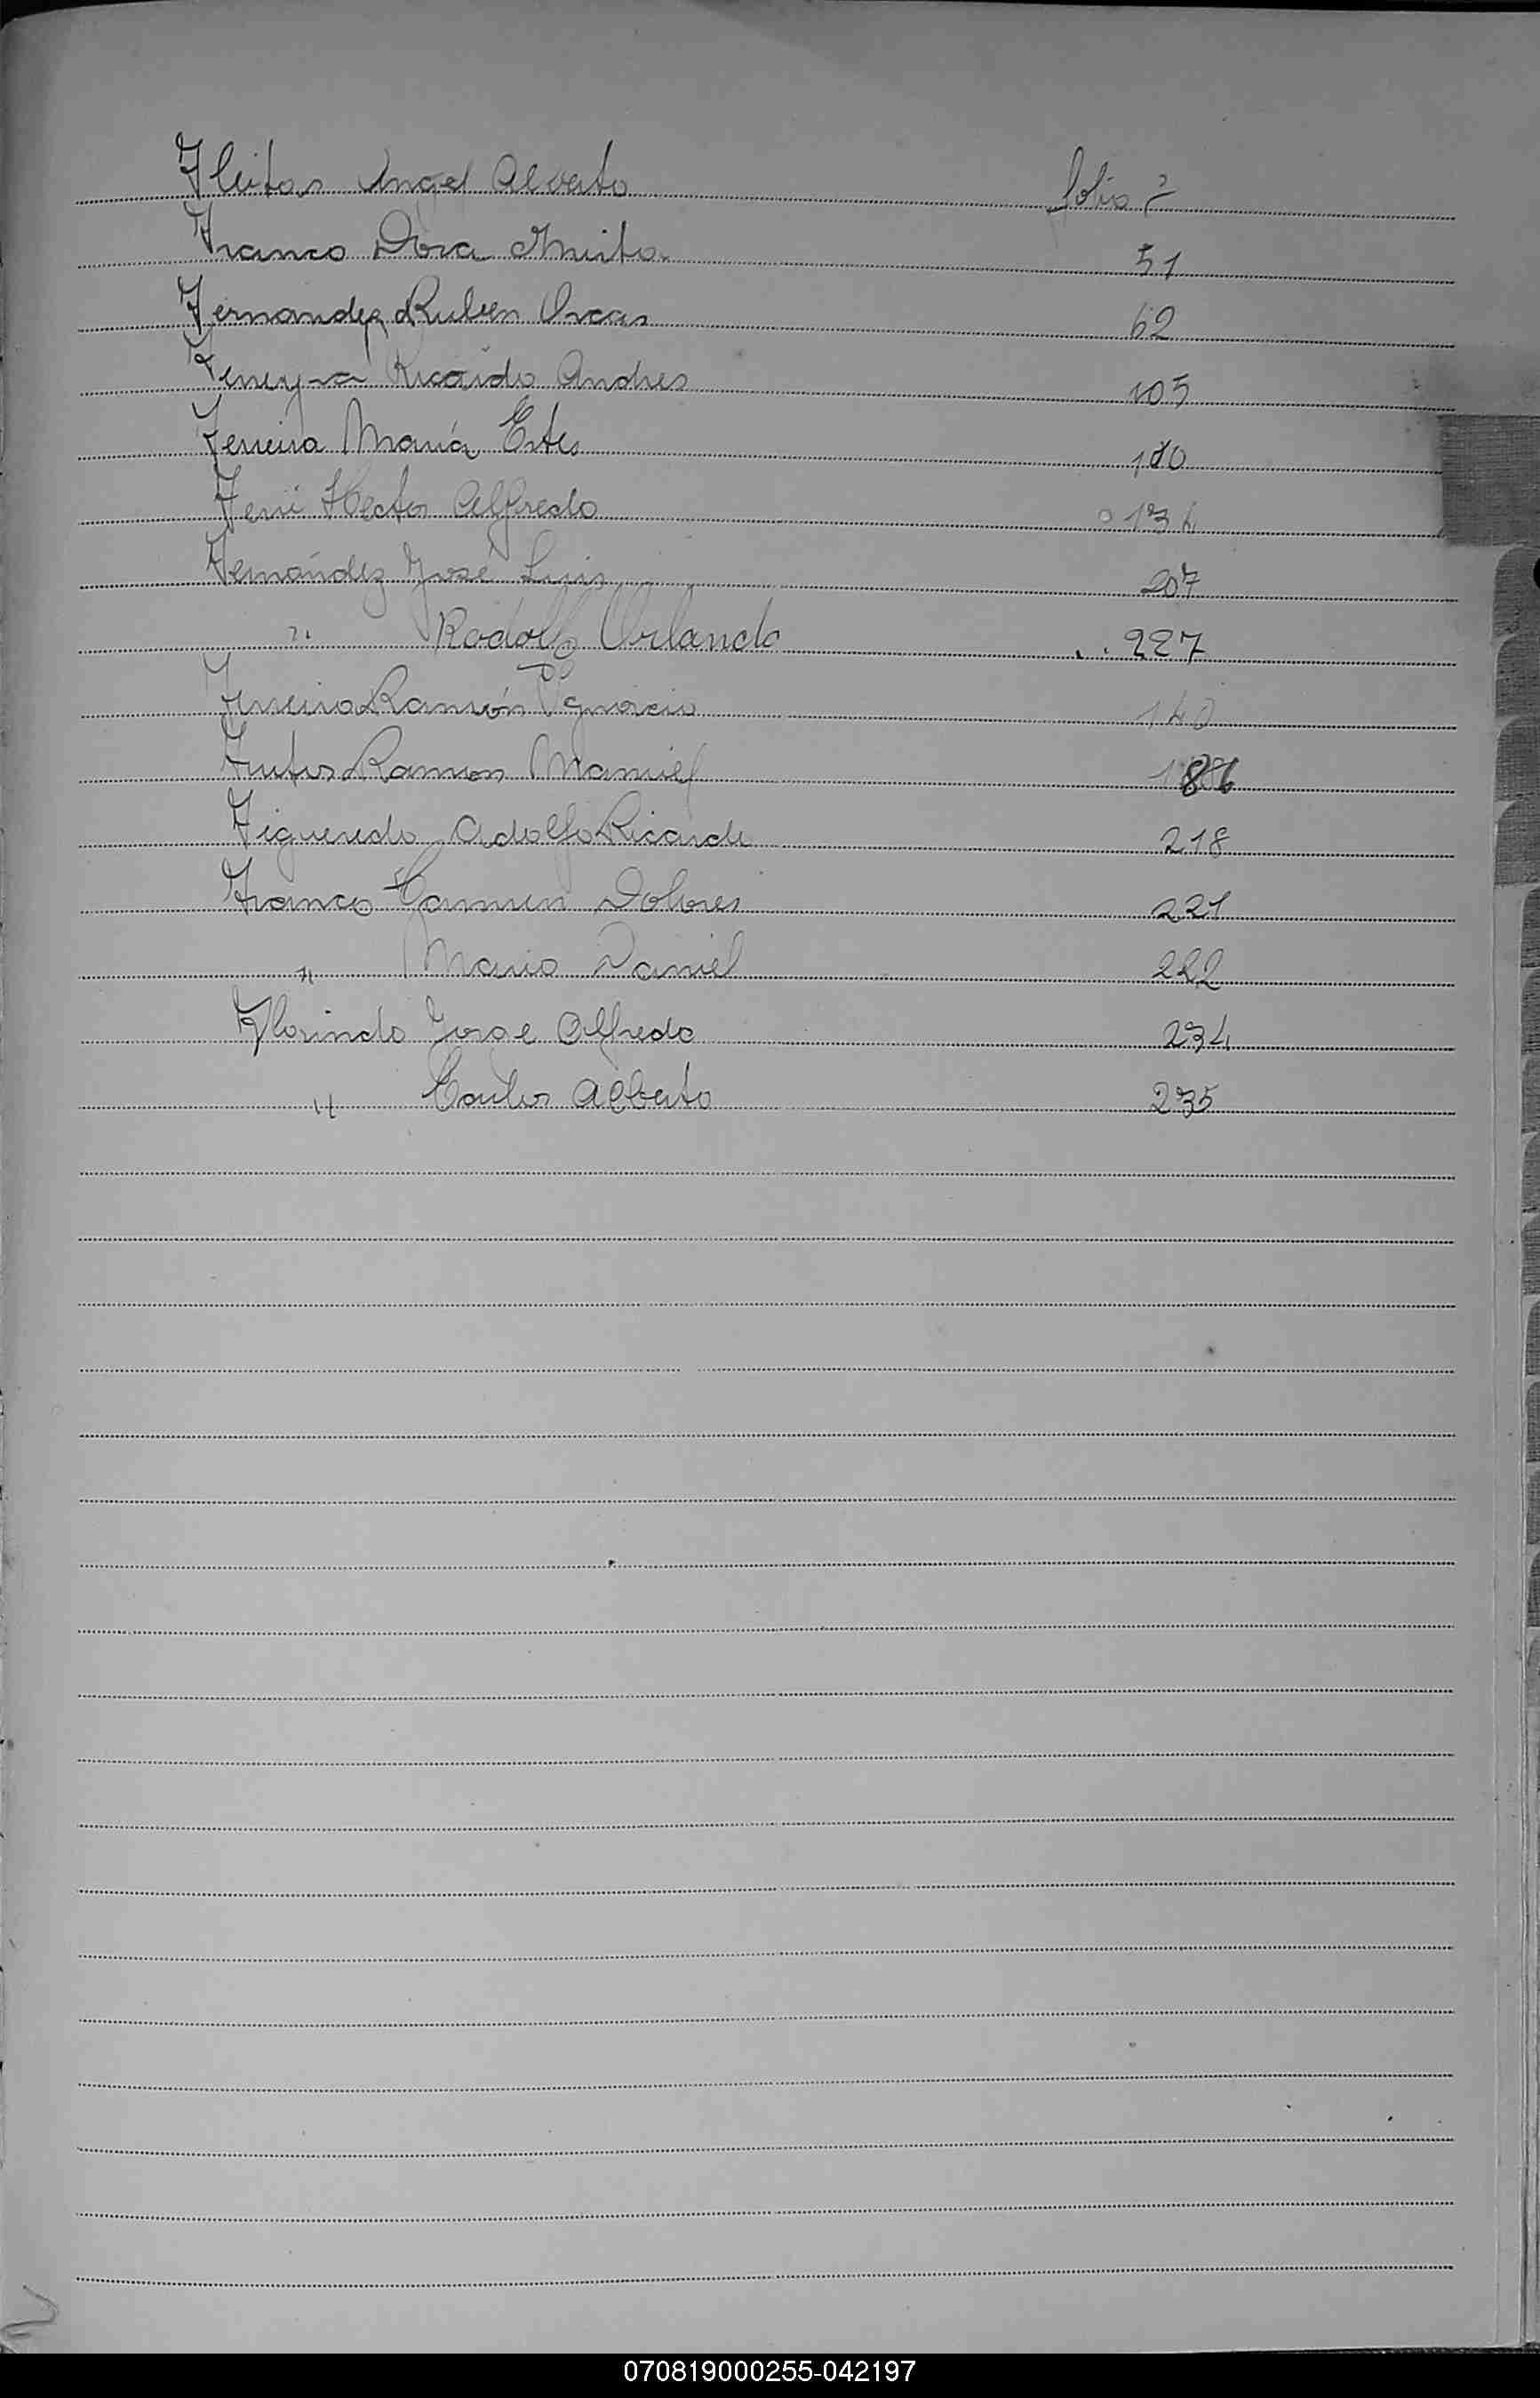 Fleitas Angel Alberto folio 2
Franco Dora Anita 51
Fernandez Ruben Oscar 62
Ferreyra Ricardo Andres 105
Ferreira María Ester 110
Ferri Hector Alfredo 134
Fernández José Luis 207
" Rodolfo Orlando 227
Ferreira Ramón Ignacio 140
Frutos Ramon Manuel 186
Figueredo Adolfo Ricardo 218
Franco Carmen Dolores 221
" Mario Daniel 222
Florindo Jorge Alfredo 234
" Carlos Alberto 235
070819000255-042197